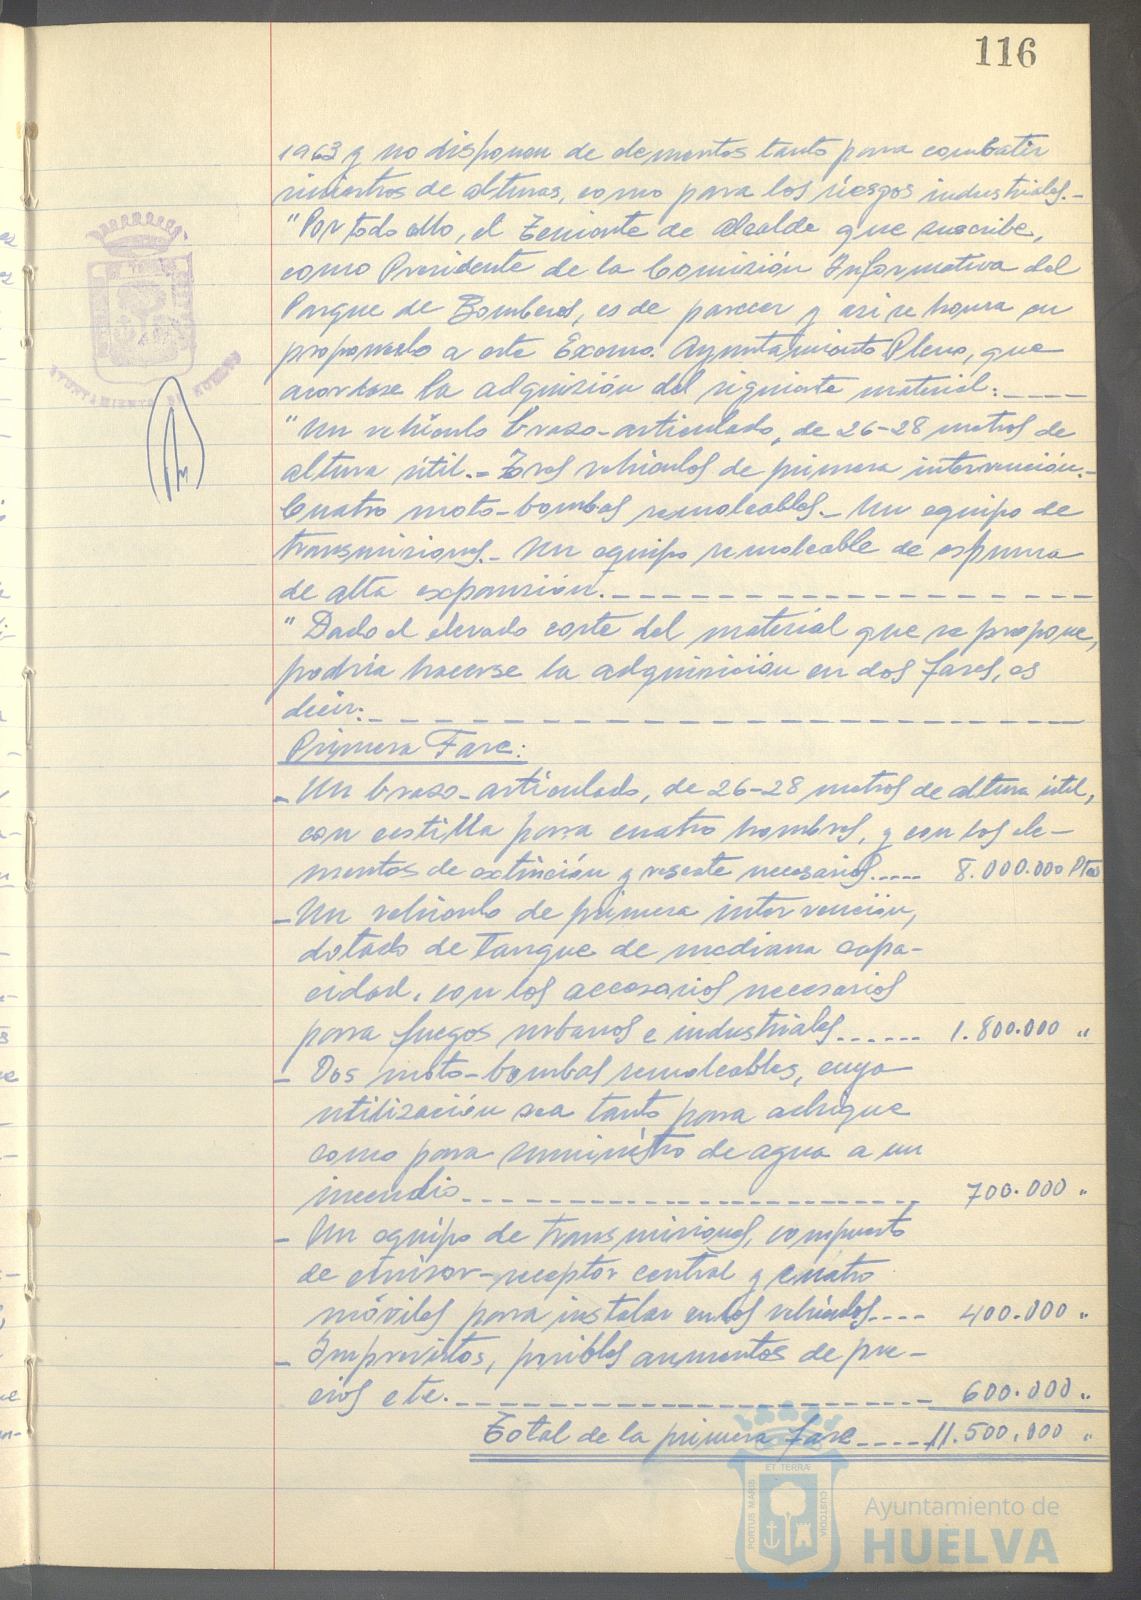 116
1963 y no disponen de elementos tanto para combatir
siniestros de alturas, como para los riesgos industriales.-
"Por todo ello, el Teniente de Alcalde que suscribe,
como Presidente de la Comisión Informativa del
Parque de Bomberos, es de parecer y así se honra en
proponerlo a este Excmo. Ayuntamiento Pleno, que
acordase la adquisición del siguiente material:----
"Un vehículo brazo-articulado, de 26-28 metros de
altura útil.- Tres vehículos de primera intervención.-
Cuatro moto-bombas remolcables.- Un equipo de
transmisiones.- Un equipo remolcable de espuma
de alta expansión.---------------
"Dado el elevado coste del material que se propone,
podría hacerse la adquisición en dos fases, es
decir:--------------------
Primera Fase:
- Un brazo-articulado, de 26-28 metros de altura útil,
con cestilla para cuatro hombres, y con los ele-
mentos de extinción y rescate necesarios..... 8.000.000 Ptas
- Un vehículo de primera intervención,
dotado de tanque de mediana capa-
cidad, con los accesorios necesarios
para fuegos urbanos e industriales...... 1.800.000 "
- Dos moto-bombas remolcables, cuya
utilización sea tanto para achique
como para suministro de agua a un
incendio-------------------- 700.000 "
- Un equipo de transmisiones, compuesto
de emisor-receptor central y cuatro
móviles para instalar en los vehículos---- 400.000 "
- Imprevistos, posibles aumentos de pre-
cios etc.-------------------- 600.000 "
Total de la primera fase-----11.500.000 "
AYUNTAMIENTO DE HUELVA
PORTUS MARIS ET TERRÆ CUSTODIA
Ayuntamiento de
HUELVA